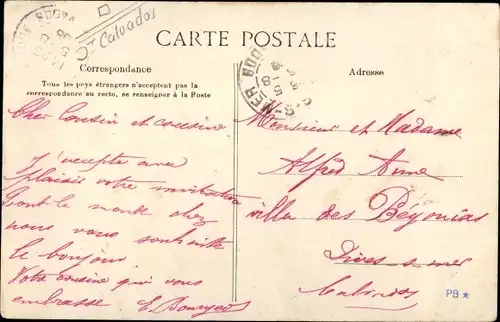 Calvados
CARTE POSTALE
Correspondance
Tous les pays étrangers n'acceptent pas la
correspondance au recto, se renseigner à la Poste
Adresse
Cher Cousin et cousine
J'accepte avec
plaisir votre invitation
tout le monde chez
nous vous souhaite
le bonjour
Votre cousine qui vous
embrasse E.
Monsieur et Madame
Alfred Anne
villa des Bégonias
Dives s mer
Calvados
PB